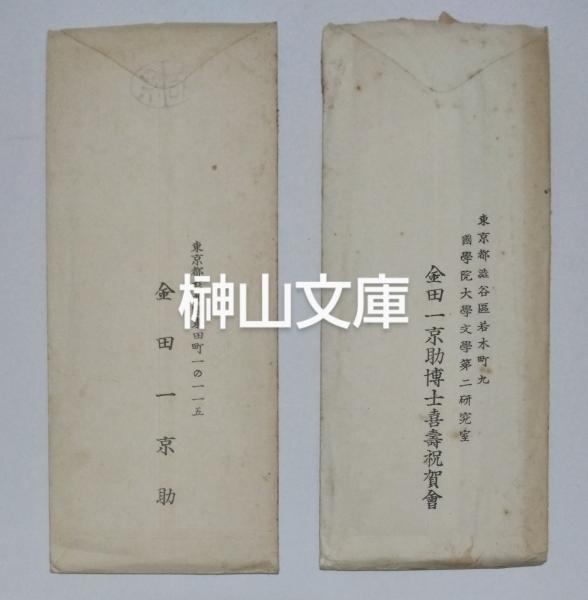 東京都
田町一の一一五
金田一京助
東京都澁谷區若木町九
國學院大學文學第二研究室
金田一京助博士喜壽祝賀會
榊山文庫